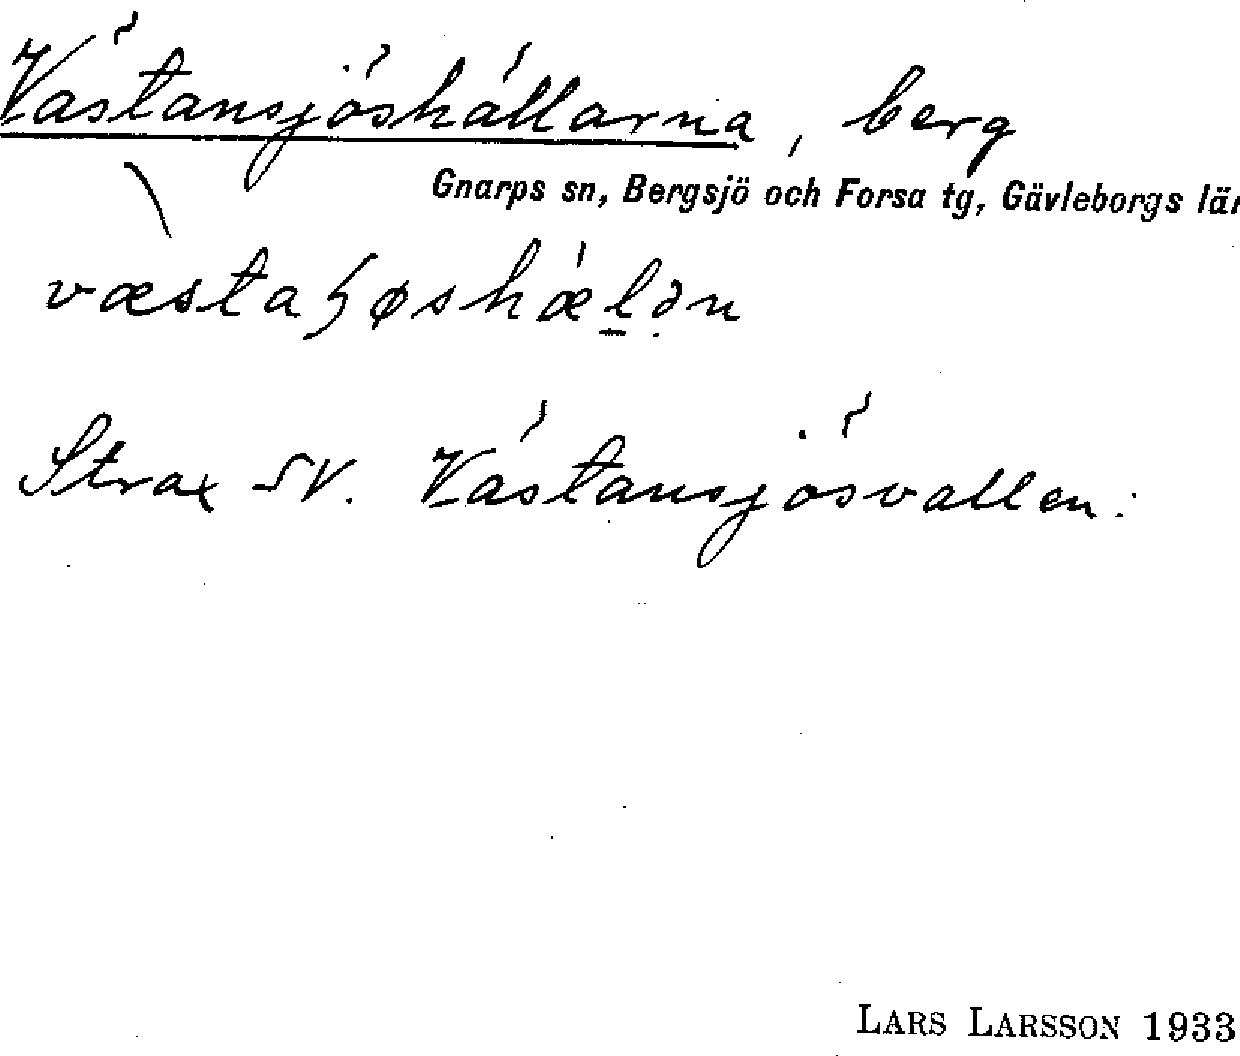 Västansjöshällarna, berg
Gnarps sn, Bergsjö och Forsa tg, Gävleborgs län
Strax SV. Västansjösvallen.
LARS LARSSON 1933